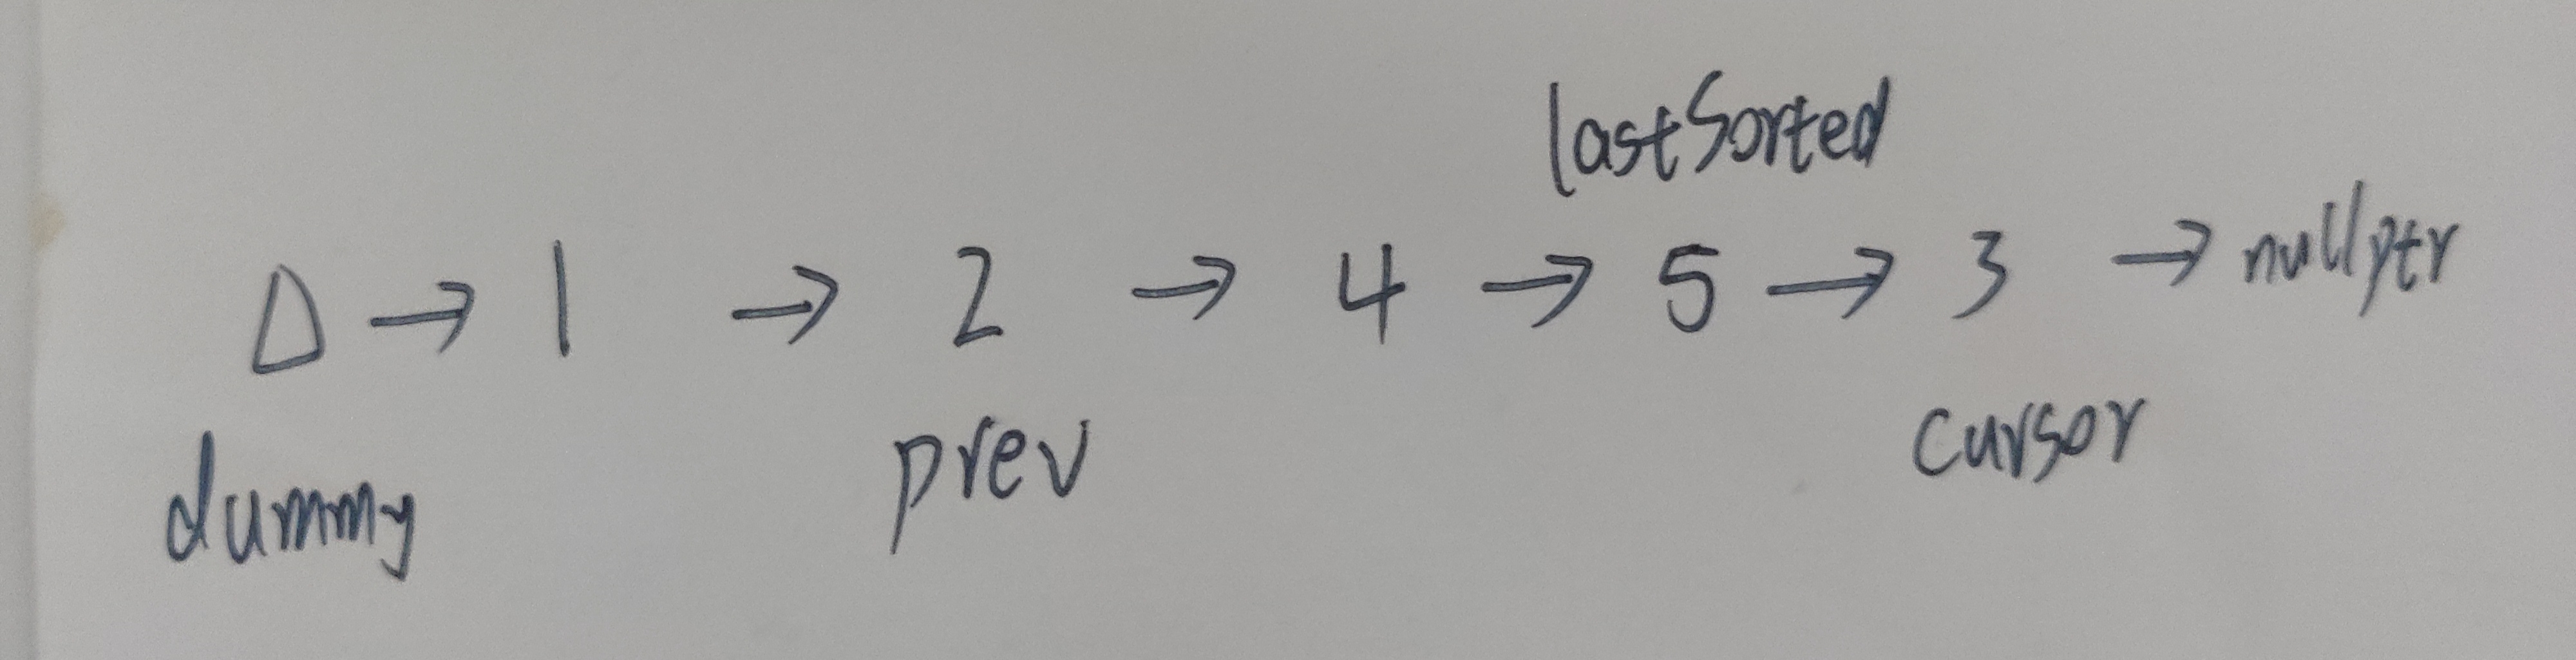 lastSorted
Δ → 1 → 2 → 4 → 5 → 3 → nullptr
dummy prev cursor